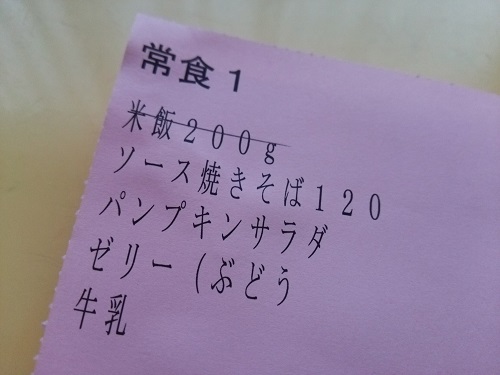 常食1
米飯200g
ソース焼きそば120
パンプキンサラダ
ゼリー(ぶどう
牛乳